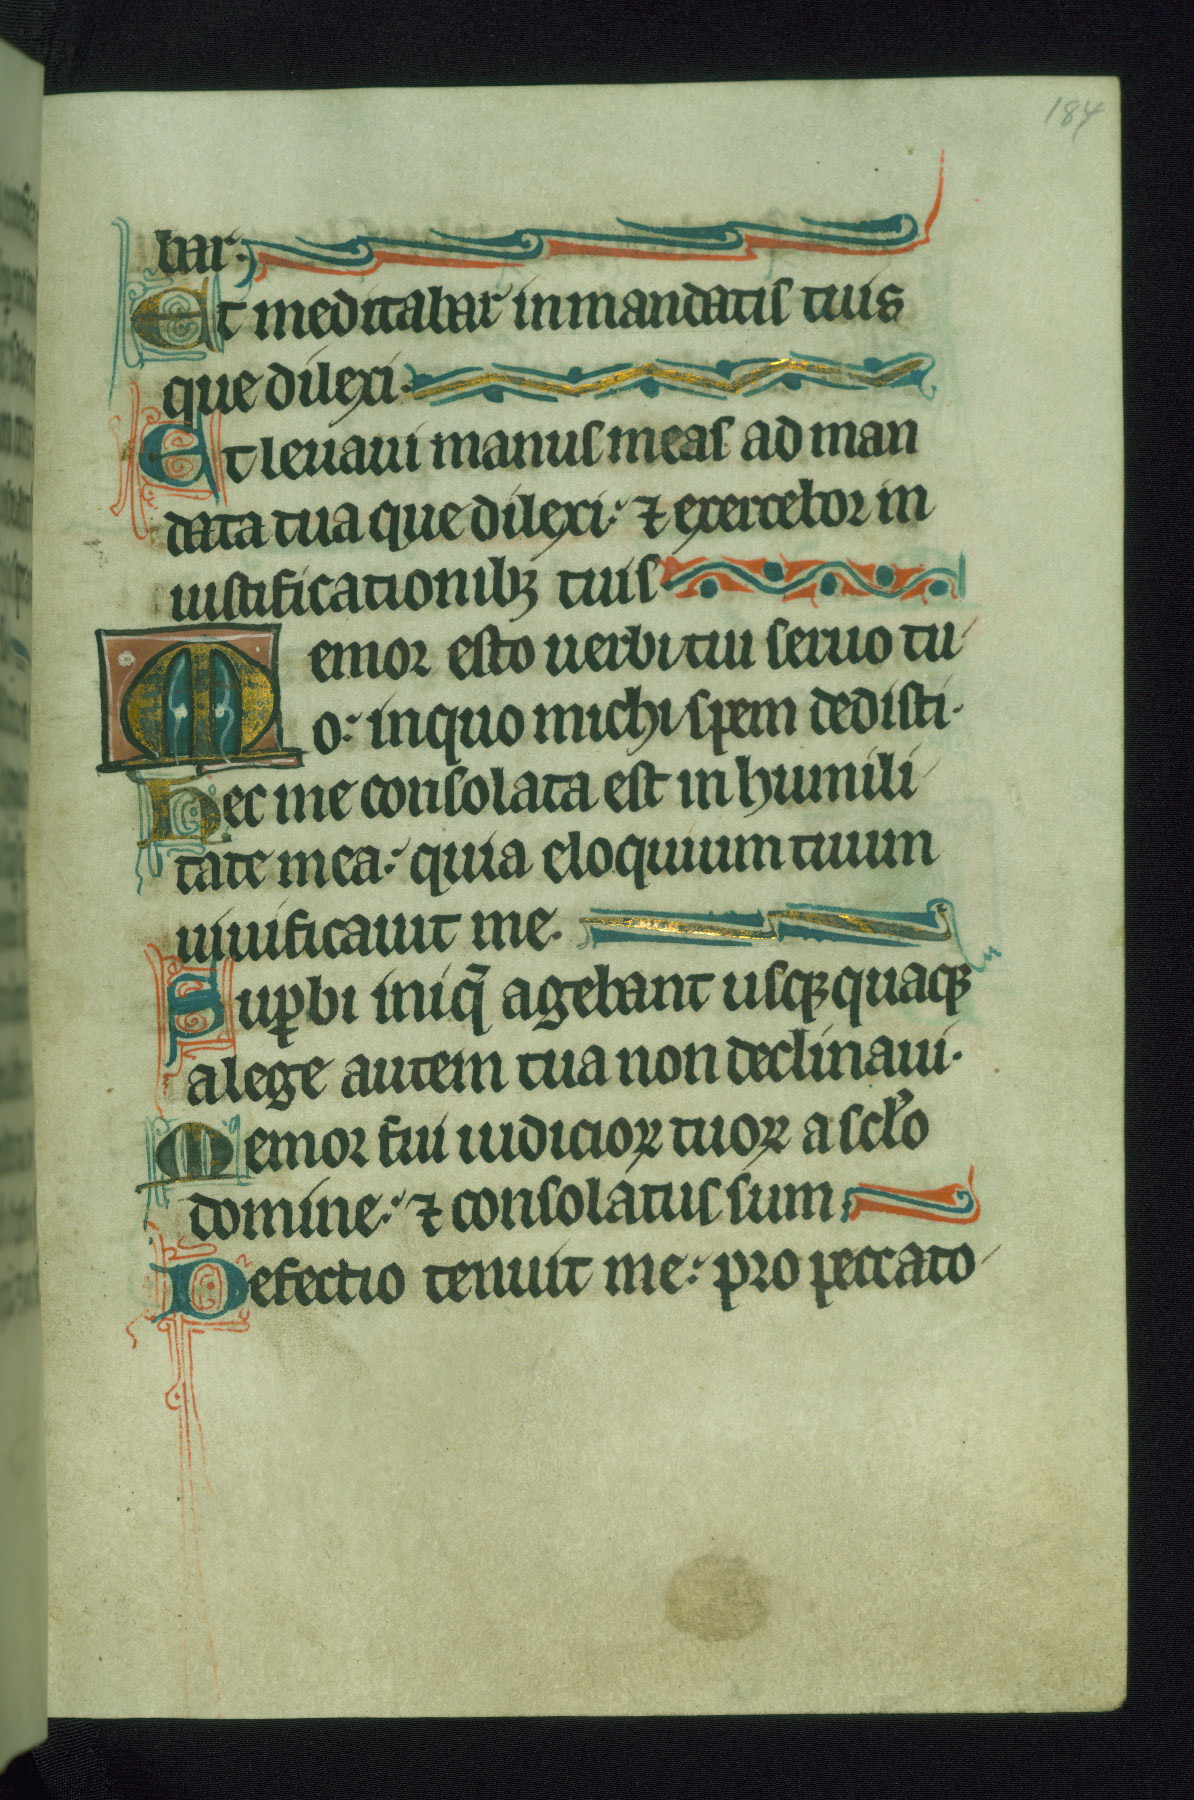 184
bar·
Et meditabar in mandatis tuis
que dilexi·
Et leuaui manus meas ad man
data tua que dilexi· ⁊ exercebor in
iustificationibꝫ tuis
Memor esto uerbi tui seruo tu
o· in quo michi spem dedisti·
Hec me consolata est in humili
tate mea· quia eloquium tuum
uiuificauit me·
Suꝑbi iniq̄ agebant usqꝫ quaqꝫ
a lege autem tua non declinaui·
Memor fui iudicioꝝ tuoꝝ a sclo
domine· ⁊ consolatus sum
Defectio tenuit me· pro peccato